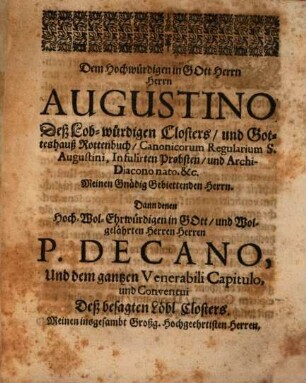 Dem Hochwürdigen in GOtt Herrn
Herrn
AUGUSTINO
Deß Lob-würdigen Closters/ und Got-
teshauß Rottenbuch/ Canonicorum Regularium S.
Augustini, Infulirten Probsten/ und Archi-
Diacono nato. &c.
Meinen Gnädig Gebiettenden Herrn.
Dann denen
Hoch-Wol-Ehrwürdigen in GOtt/ und Wol-
gelährten Herren Herren
P. DECANO,
Und dem gantzen Venerabili Capitulo,
und Conventui
Deß besagten Löbl Closters.
Meinen insgesambt Großg. Hochgeehrtisten Herren.